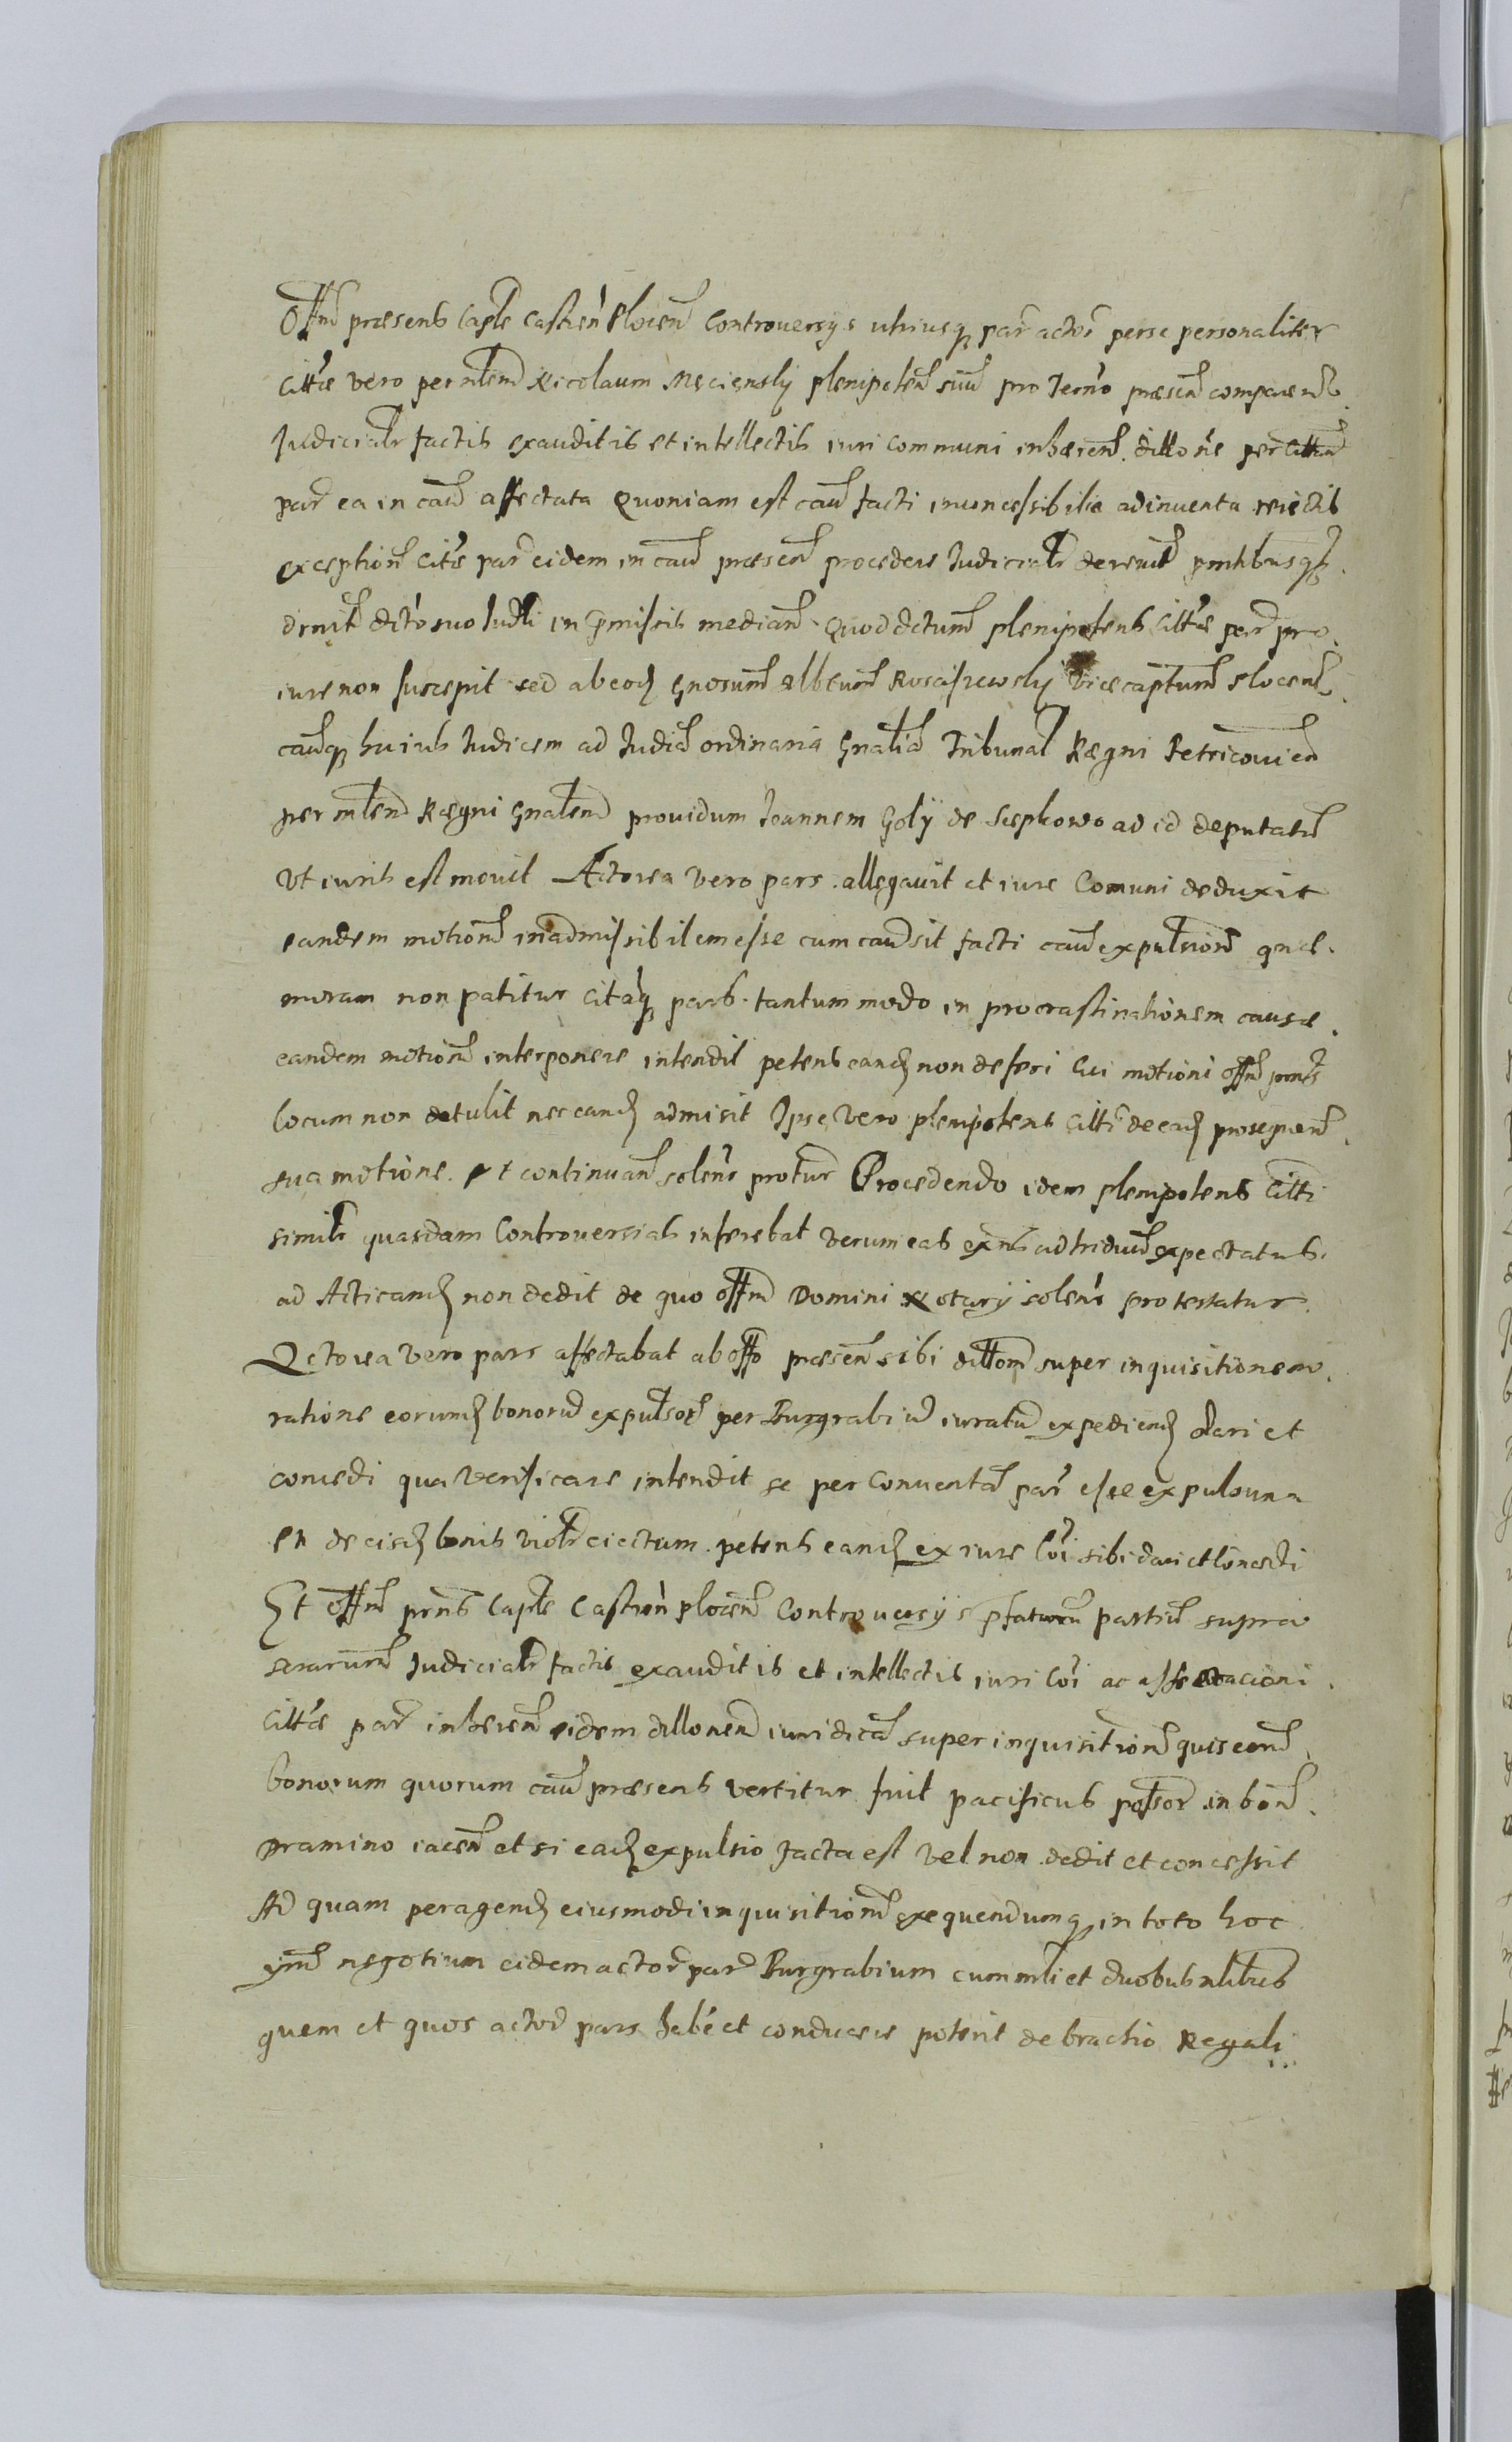 Offm præsens Captle Castren Plocen Controversys utriusq par actor perse personaliter
Cittæ vero per nlem Nicolaum Męciensky plenipoten suu pro Termo præsen comparen
Judicialr factis exauditis et intellectis iuri communi inhæren dillone per Cittam
par ea in cau affectata Quoniam est cau facti inconcessibilie adinventa reiectis
exception Citæ par eidem in cau præsen procedere Judicialr decrevit pntibusq
drnit dcto suo Judli in pmissis median Quod dctum plenipotens Cittæ par pro
iure non suscepit sed ab eod Gnosum Albtum Rosciszewsky Vicecaptum Plocen
causq huius Judicem ad Judia ordinaria Gnalia Tribunal Regni Petricovien
per mlem Regni Gnalem providum Joannem Goly de Siepkowo ad id deputatu
Ut iuris est movit Actorea vero pars allegavit et iure Comuni deduxit
eandem motionem inadmissibilem esse cum cau sit facti cau expulsion quæ
moram non patitur citaq pars tantummodo in procrastinationem causæ
eandem motion interponere intendit petens eand non deferi Cui motioni offm pns
locum non detulit nec eand admisit Ipse vero plenipotens Citti de ead prosequen
sua motione et continuan solenr protur Procedendo idem plenipotens Citti
similr quasdam Controversias inferebat verum eas exns ad triduum expectatus
ad Acticand non dedit de quo offm Domini Notarÿ solenr protestatur
Actorea vero pars affectabat ab offo præsen sibi dillom super inquisitionem
ratione eorumd bonoru expulsor per Burgrabiu iuratu expediend dari et
concedi qua verificare intendit se per Conventa par esse expulsum
et de eisd bonis violr eiectum petens eand ex iure Coi sibi dari et concedi
Et offm pns Captle Castren plocen Controversys pfatarum partiu supra
Judicialr factis exauditis et intellectis iuri Coi ac affectacioni
Cittæ par inheren eidem dillonem iuridica super inquisition quis eom
bonorum quorum cau præsens vertitur fuit pacificus possor in bon
Dramino iacen et si ead expulsio facta est vel non dedit et concessit
Ad quam peragend eiusmodi inquisition exequendumq in toto hoc
negotium eidem actor par Burgrabium cum mli et duobus nlibus
quem et quos actor pars habe et conducere poterit de brachio Regali